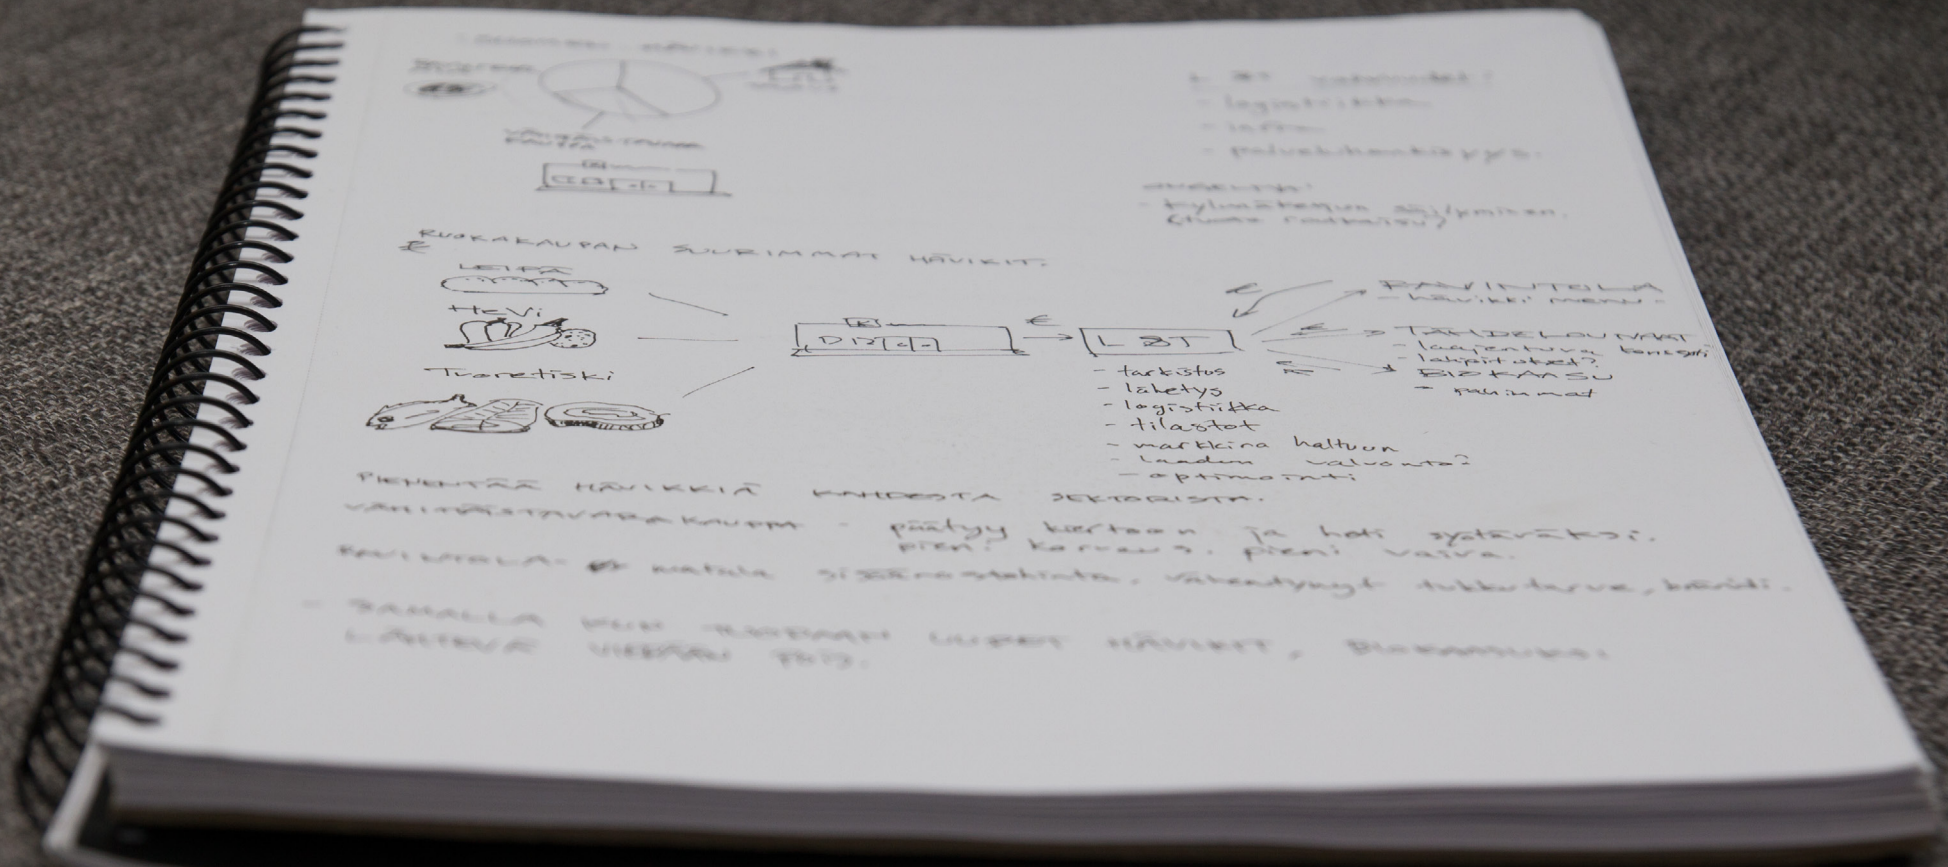 VÄHITTÄISTAVARA
KAUPPA
L&T vahvuudet:
- logistiikka
- infra
- palvelihenkisyys.
ONGELMA:
- kylmäketjun säilyminen.
RUOKAKAUPAN SUURIMMAT HÄVIKIT.
€
LEIPÄ
HeVi
Tuoretiski
K
€
L&T
- tarkistus
- lähetys
- logistiikka
- tilastot
- markkina haltuun
- laadun valvonta?
- optimointi
€
RAVINTOLA
- hävikki menu -
€
TÄHDELOUNAAT
- laajentuva konsepti
€
BIOKAASU
- pahimmat
PIENENTÄÄ HÄVIKKIÄ KAHDESTA SEKTORISTA.
VÄHITTÄISTAVARAKAUPPA - päätyy kiertoon ja heti syötäväksi.
pieni korvaus. pieni vaiva.
RAVINTOLA - matala sisäänostohinta, vähentynyt tukkutarve,
- SAMALLA KUN TUODAAN UUDET HÄVIKIT, BIOKAASUKSI
LÄHTEVÄ VIEDÄÄN POIS.